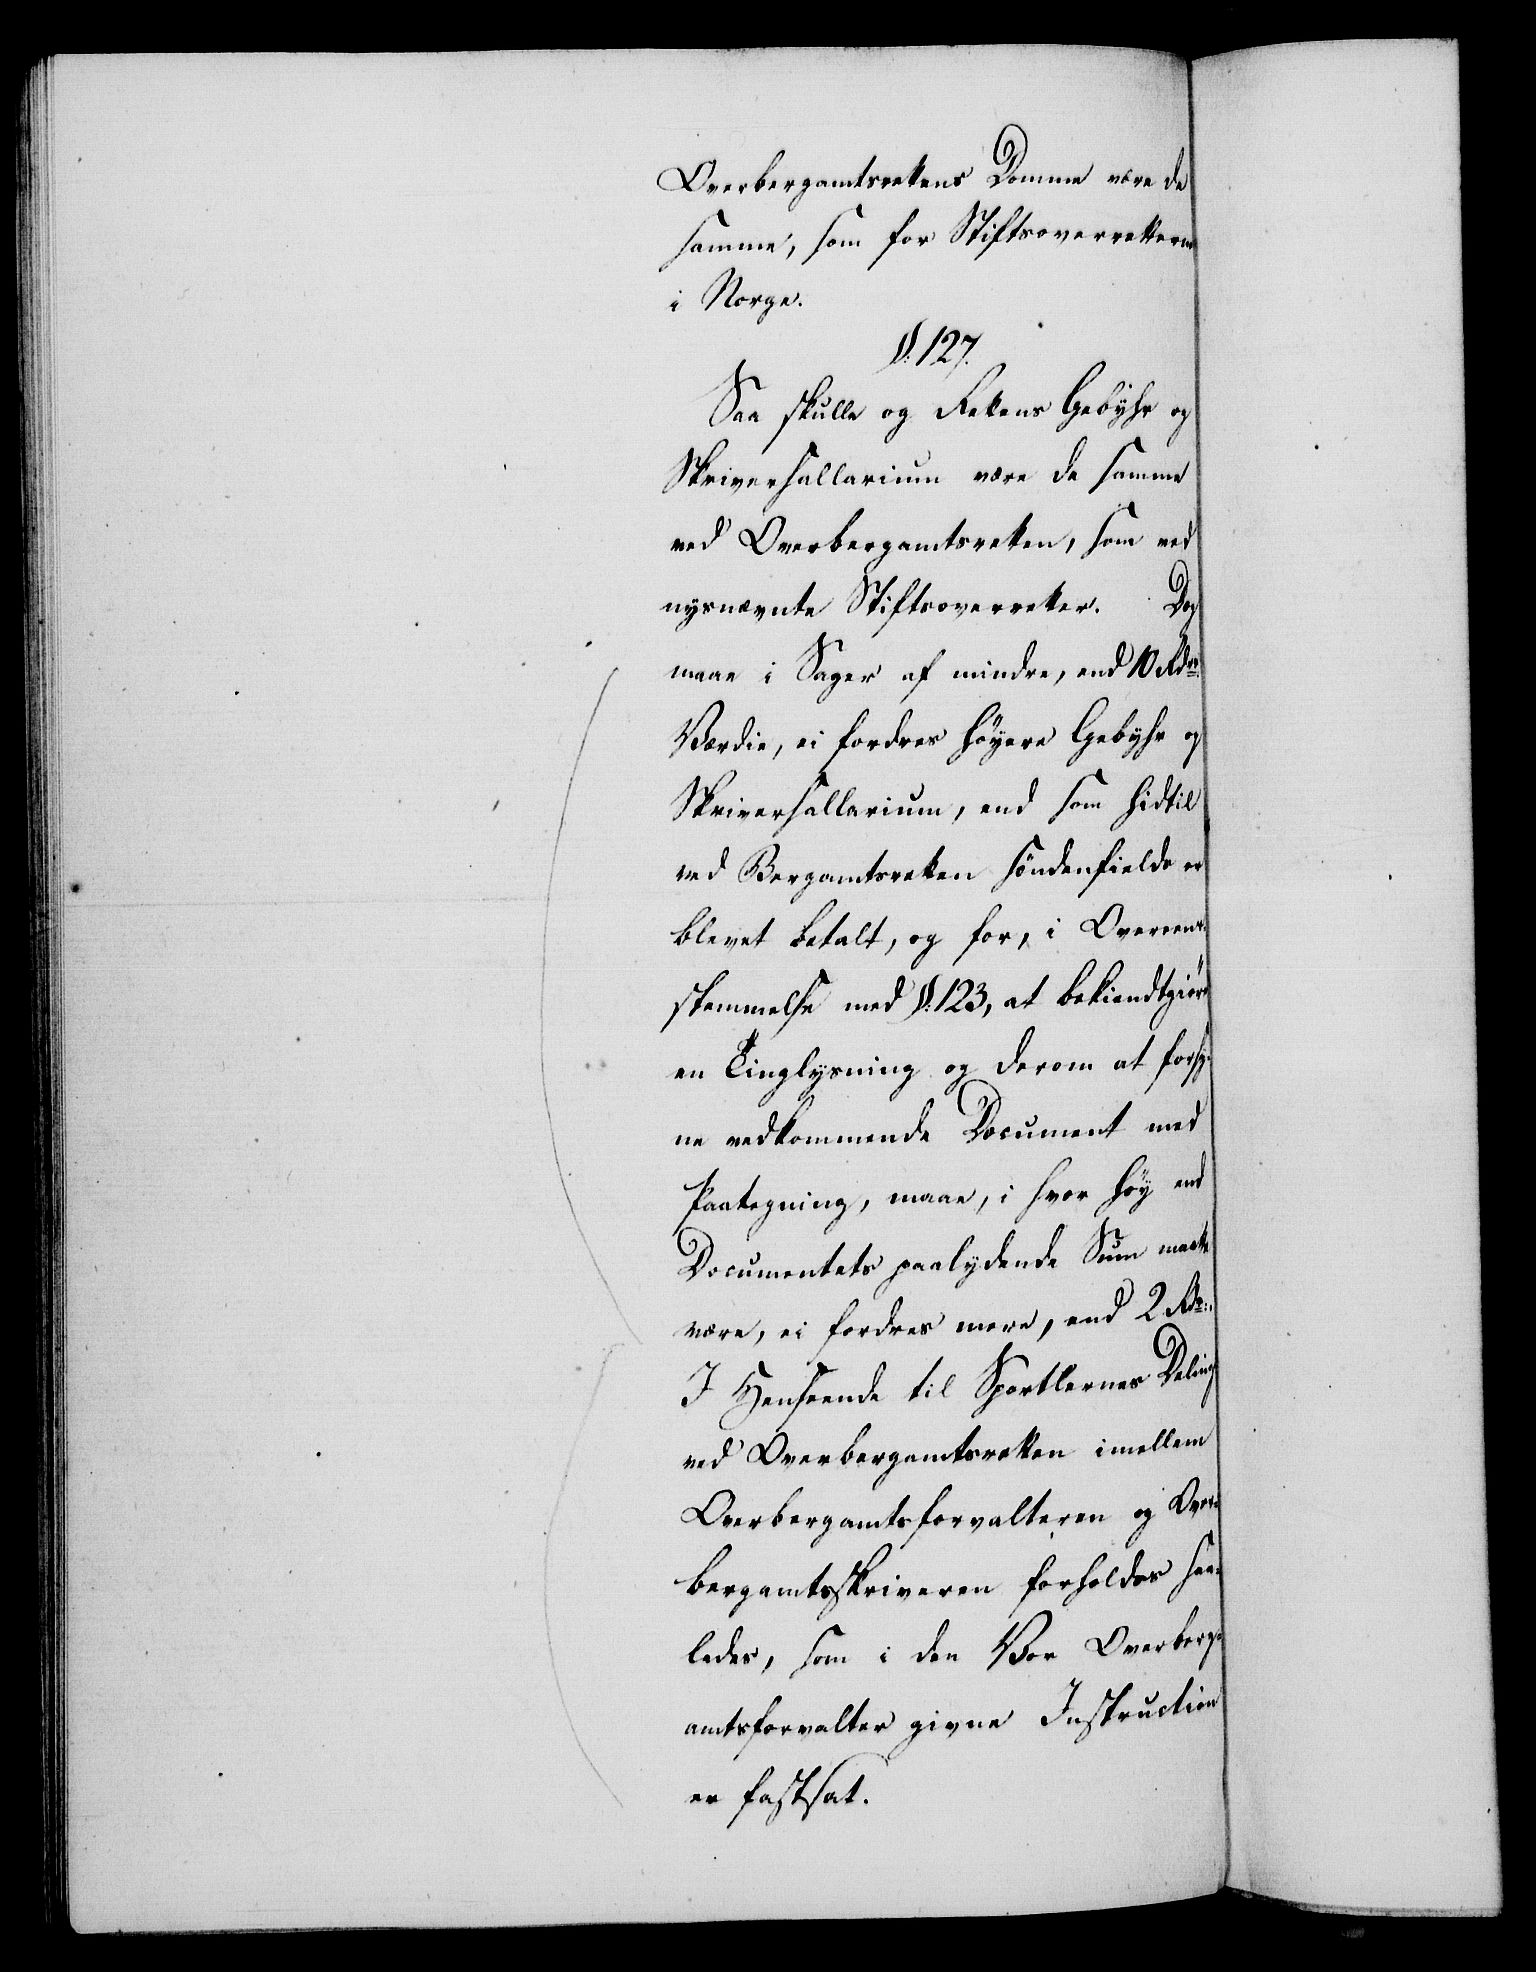 Overbergamtsrettens Domme være de
samme, som for Stiftsoverretterne
i Norge.
§. 127.
Saa skulle og Rettens Gebyhr og
Skriversallarium være de samme
ved Overbergamtsretten, som ved
nysnævnte Stiftsoverretter. Dog
maae i Sager af mindre, end 10 Rdrs
Værdie, ei fordres høyere Gebyhr og
Skriversallarium, end som hidtil
ved Bergamtsretten söndenfields er
blevet betalt, og for, i Overeens-
stemmelse med §. 123, at bekiendtgiøre
en Tinglysning og derom at forsy-
ne vedkommende Document med
Paategning, maae, i hvor høy end
Documentets paalydende Sum maatte
være, ei fordres mere, end 2 Rdr.
I Henseende til Sportlernes Deling
ved Overbergamtsretten imellem
Overbergamtsforvalteren og Over-
bergamtsskriveren forholdes saa-
ledes, som i den Vor Overberg-
amtsforvalter givne Instruction
er fastsat.